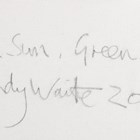 Sun, Green
dy Waite 20